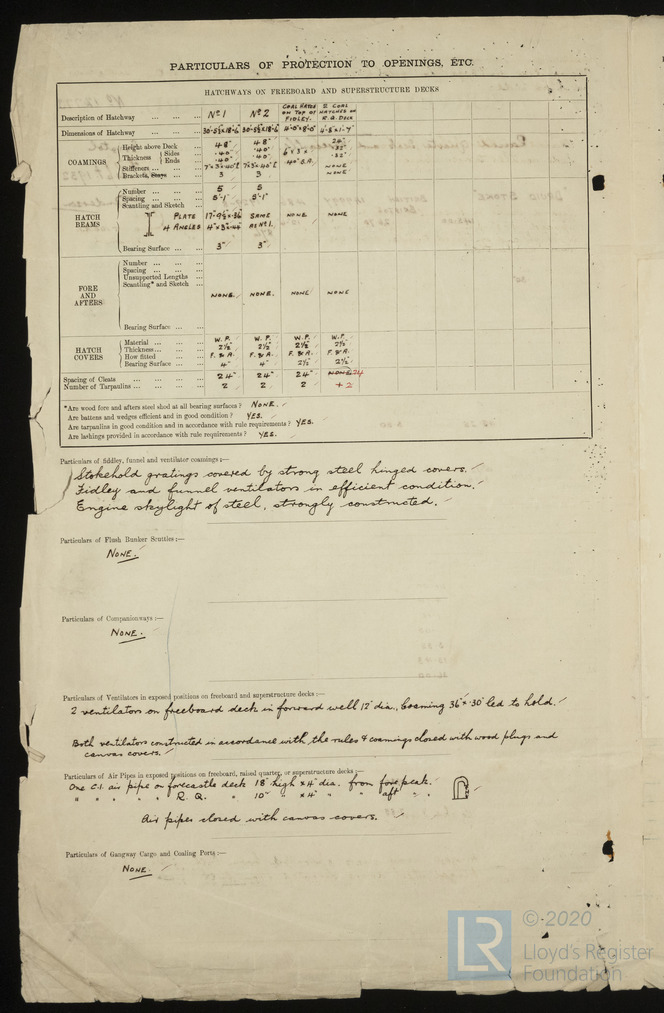 PARTICULARS OF PROTECTION TO OPENINGS, ETC.
HATCHWAYS ON FREEBOARD AND SUPERSTRUCTURE DECKS
Description of Hatchway ... ... ... Nº 1 Nº 2 COAL HATCH ON TOP OF FIDLEY. 2 COAL HATCHES ON R.Q. DECK
Dimensions of Hatchway ... ... ... 30-5½×18-6 30-5½×18-6 4'-0"×8'-0" 4'-8"×1-7"
COAMINGS
Height above Deck ... 48" 48" 24"
Thickness Sides ... ·40" ·40" 6"×3"× ·32"
Ends ... ·40" ·40" 40 B.A. ·32"
Stiffeners ... ... ... 7"×3"×·40"E 7"×3"×·40"E NONE
Brackets, Stays ... ... 3 3 NONE
HATCH BEAMS
Number ... ... ... 5 5
Spacing ... ... ... 5'-1" 5'-1"
Scantling and Sketch ...
PLATE 17"-9½×·36 SAME NONE NONE
4 ANGLES 4"×3"×·44" AS Nº 1.
Bearing Surface ... ... 3" 3"
FORE AND AFTERS
Number ... ... ...
Spacing ... ... ...
Unsupported Lengths ...
Scantling* and Sketch ...
NONE. NONE. NONE NONE
Bearing Surface ... ...
HATCH COVERS
Material ... ... ... W.P. W.P. W.P. W.P.
Thickness... ... ... 2½" 2½" 2½" 2½"
How fitted ... ... F. & A. F. & A. F. & A. F. & A.
Bearing Surface ... ... 4" 4" 2½" 2½"
Spacing of Cleats ... ... ... ... 24" 24" 24" NONE 24
Number of Tarpaulins ... ... ... ... 2 2 2 + 2
*Are wood fore and afters steel shod at all bearing surfaces ? NONE.
Are battens and wedges efficient and in good condition ? YES.
Are tarpaulins in good condition and in accordance with rule requirements ? YES.
Are lashings provided in accordance with rule requirements ? YES.
Particulars of fiddley, funnel and ventilator coamings :—
Stokehold gratings covered by strong steel hinged covers.
Fidley and funnel ventilators in efficient condition.
Engine skylight of steel, strongly constructed.
Particulars of Flush Bunker Scuttles :—
NONE.
Particulars of Companionways :—
NONE.
Particulars of Ventilators in exposed positions on freeboard and superstructure decks :—
2 ventilators on freeboard deck in forward well 12" dia., Coaming 36"×·30" led to hold.
Both ventilators constructed in accordance with the rules & coamings closed with wood plugs and
canvas covers.
Particulars of Air Pipes in exposed positions on freeboard, raised quarter, or superstructure decks :—
One C.I. air pipe on forecastle deck 18" high × 4" dia. from fore peak.
" " " " " R. Q. " 10" " × 4" " " aft " "
Air pipes closed with canvas covers.
Particulars of Gangway Cargo and Coaling Ports :—
NONE.
LR
© 2020
Lloyd's Register
Foundation